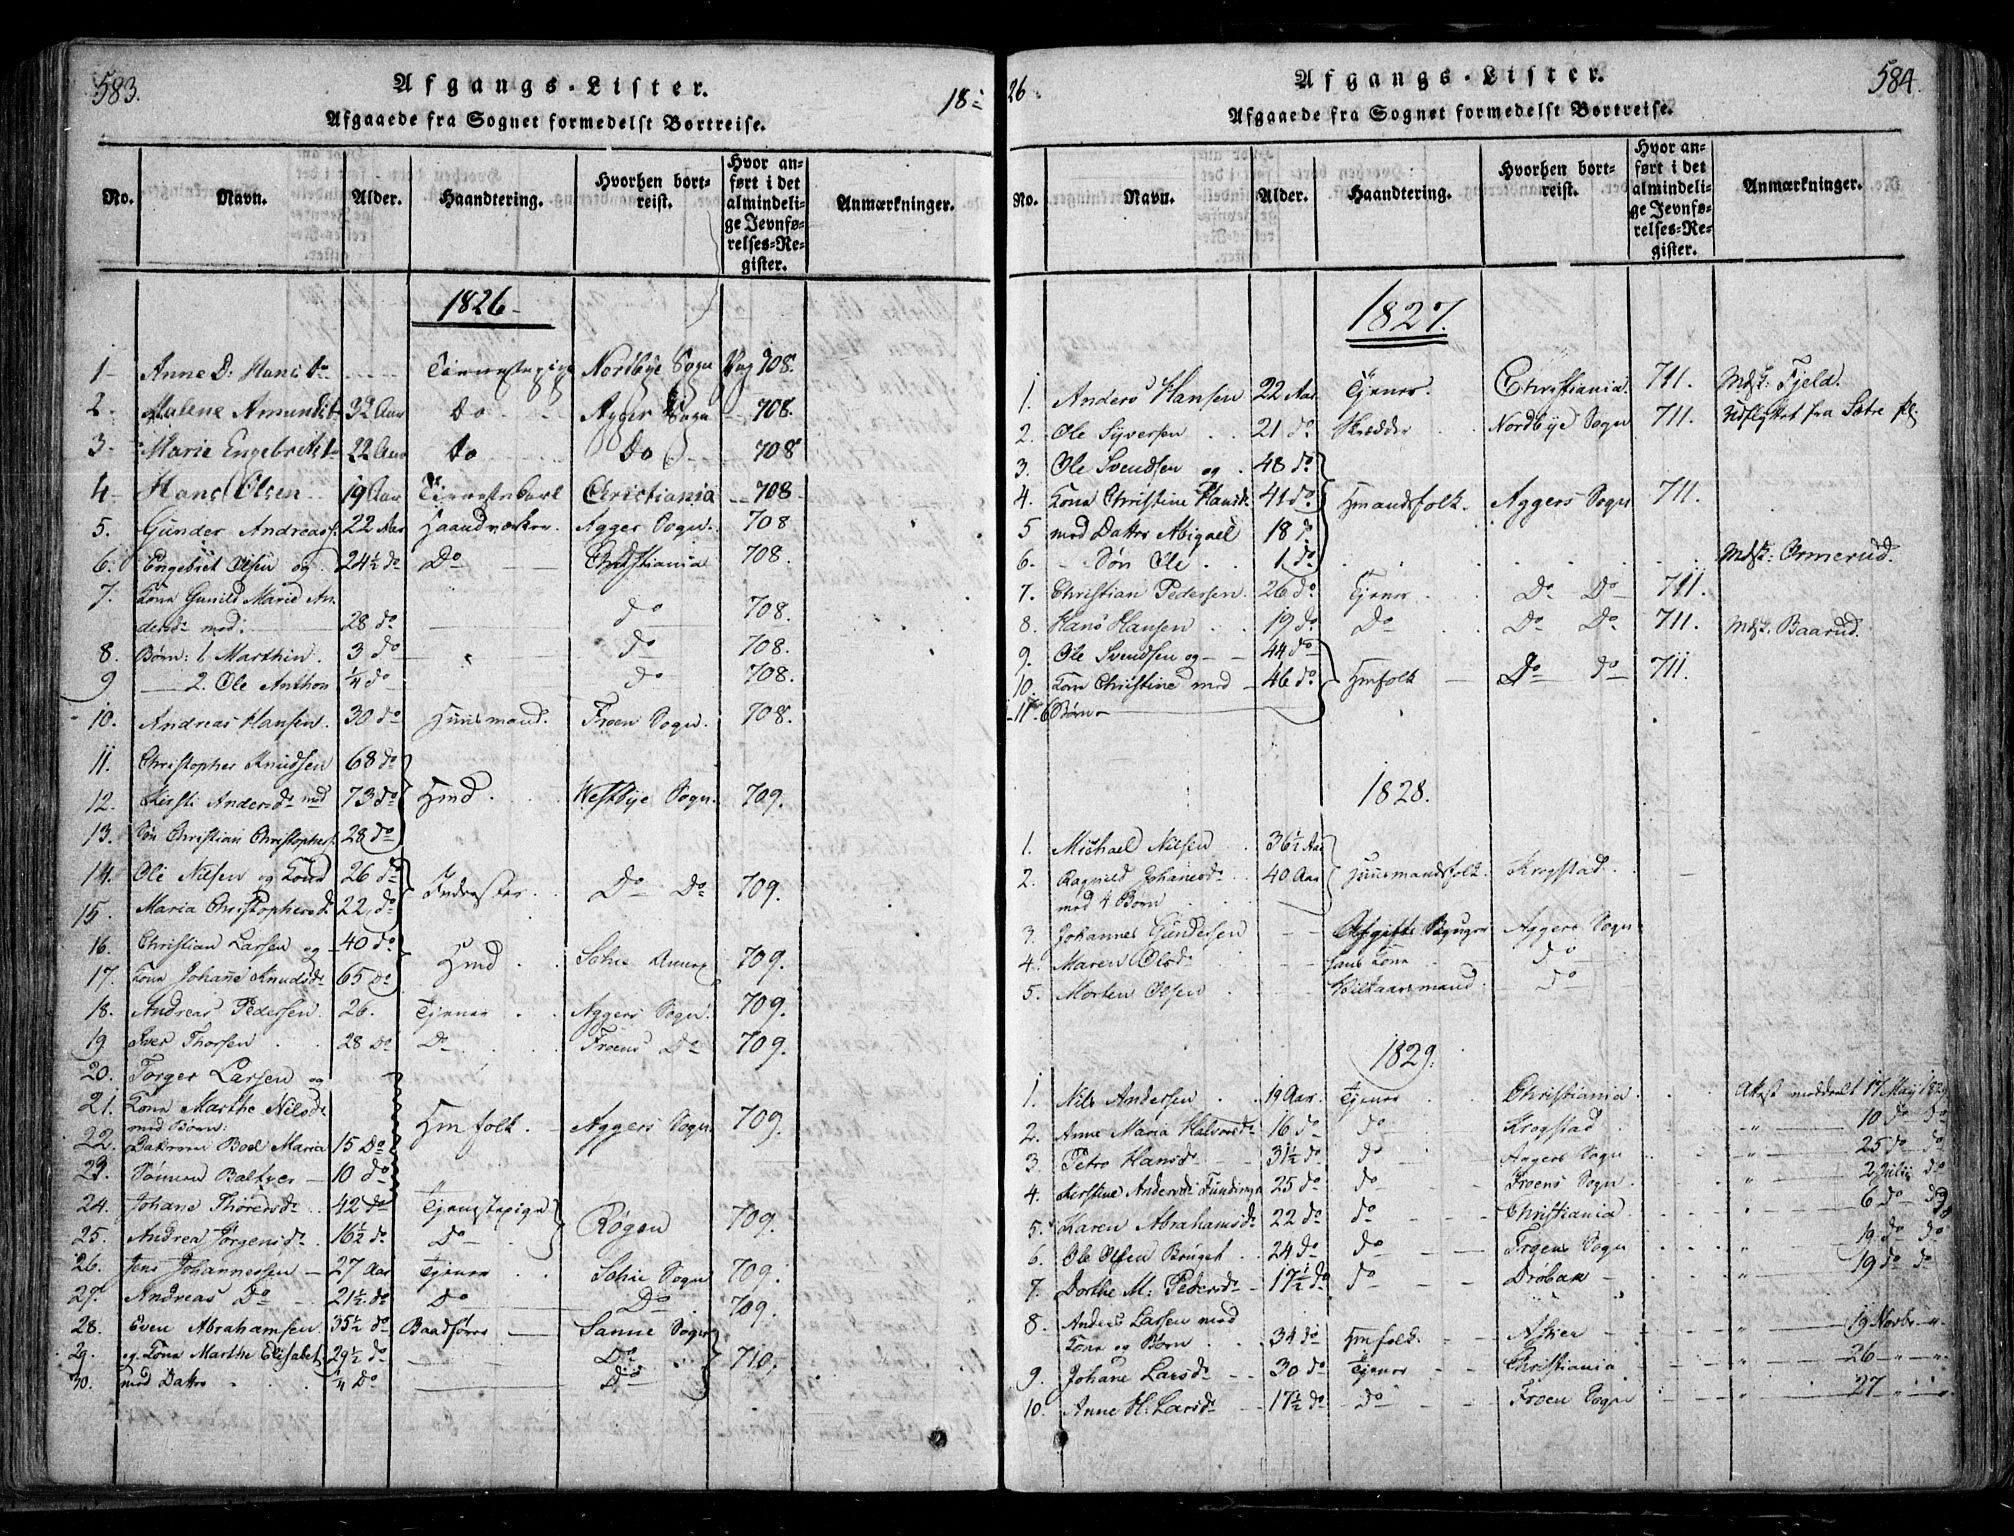 583.
Afgangs-Lister.
18-
Afgaaede fra Sognet formedelst Bortreise.
No. Navn. Alder. Haandtering. Hvorhen bortreist. Hvor anført i det almindelige Jevnførelses-Register. Anmærkninger.
1826-
1 Anne D: Hans do Tienestepige Nordbye Sogn Pag 708.
2. Malene Amundsd 32 Aar Do Agger Sogn 708.
3. Marie Engebretsd 22 Aar do Do 708
4 Hans Olsen 19 Aar Tienestekarl Christiania 708
5. Gunder Andreass. 22 Aar Haandværksm. Agger Sogn. 708
6. Engebret Olsen og 24½ do Do Christiania 708.
7. Kone Gunild Marie An
dersd. med: 28 do do 708.
8. Børn: 1. Marthin. 3 do do 708.
9 2. Ole Anthon ¼ do do 708.
10. Andreas Hansen. 30 do Huusmand. Froen Sogn. 708.
11. Christopher Knudsen 68 do
12. Kirsti Andersd. med 73 do Hmd. Westbye Sogn. 709.
13. Søn Christian Christophers. 28 do
14. Ole Nilsen og Kone 26 do Inderster. Do Do 709.
15. Maria Christophersd. 22 do
16. Christian Larsen og 40 do Hmd Sohn Annex 709.
17. Kone Johane Knudsd. 65 Do
18. Andreas Pedersen. 26. Tjener Aggers Sogn. 709.
19 Iver Thorsen 28 Do Do Froens Do 709.
20. Torger Larsen og
21. Kone Marthe Nilsd. Hmfolk Aggers Sogn. 709.
med Børn:
22. Datteren Boel Maria 15 Do
23. Sønnen Baltzer 10 do
24. Johane Thoresd. 42 do Tjenestepige Røgen 709.
25. Andrea Jørgensd. 16½ do Do
26. Jens Johannessen 27 Aar Tjener Sohn Sogn 709.
27. Andreas Do 21½ do Do Do 709.
28. Even Abrahamsen. 35½ do Baadfører Sanne Sogn
29. og Kone Marthe Elisabet 29½ do Do 710.
30. med Datter ¼ Do Do
26.
Afgangs-Lister.
584.
Afgaaede fra Sognet formedelst Bortreise.
No. Navn. Alder. Haandtering. Hvorhen bortreist. Hvor anført i det almindelige Jevnførelses-Register. Anmærkninger.
1827.
1. Anders Hansen 22 Aar Tjener. Christiania. 711. Fjeld.
2. Ole Syversen 21 do Skrædder Nordbye Sogn 711. Udflyttet fra Sætre
3. Ole Svendsen og 48 do
4. Kone Christine Hansd. 41 do Hmandsfolk. Aggers Sogn 711.
5 med Datter Abigael 18 d.
6. Søn Ole 1 do Ormerud.
7. Christian Pedersen. 26 do Tjener Do Do 711.
8. Hans Hansen 19 do Do Do Do 711. Baarud.
9. Ole Svendsen og 44 do
10. Kone Christine med 46 do Hmfolk Do do 711.
11. 6 Børn
1828.
1. Michael Nilsen 36½ Aar
2. Ragnild Johanesd. 40 Aar Huusmandsfolk. Krogstad.
med 4 Børn
3. Johannes Gundersen Afgifts Bruger Aggers Sogn
4. Maren Olsd. hans Kone do
5. Morten Olsen Vilkaarsmand. do
1829.
1. Nils Andersen 19 Aar. Tjener Christiania meddeelt 17 May 1829
2. Anne Maria Halvorsd. 16 do do Krogstad 10 do do
3. Petro Hansd. 31½ do. do Aggers Sogn 25 do do
4. Kirstine Andersd. 25 do do Froens Sogn 2 Julii do
5. Karen Abrahamsd. 22 do do Christiania. 6 do do
6. Ole Olsen 24 do do Froens Sogn 19 do do
7. Dorthe M: Pedersd. 17½ do do Drøbak 19 do do
8. Anders Larsen med
Kone og Børn 34 do Hmfolk. Asker 19 Novbr "
9. Johane Larsd. 30 do Tjener Christiania 26 " "
10. Anne H: Larsd. 17½ do do Froen Sogn 27 " "